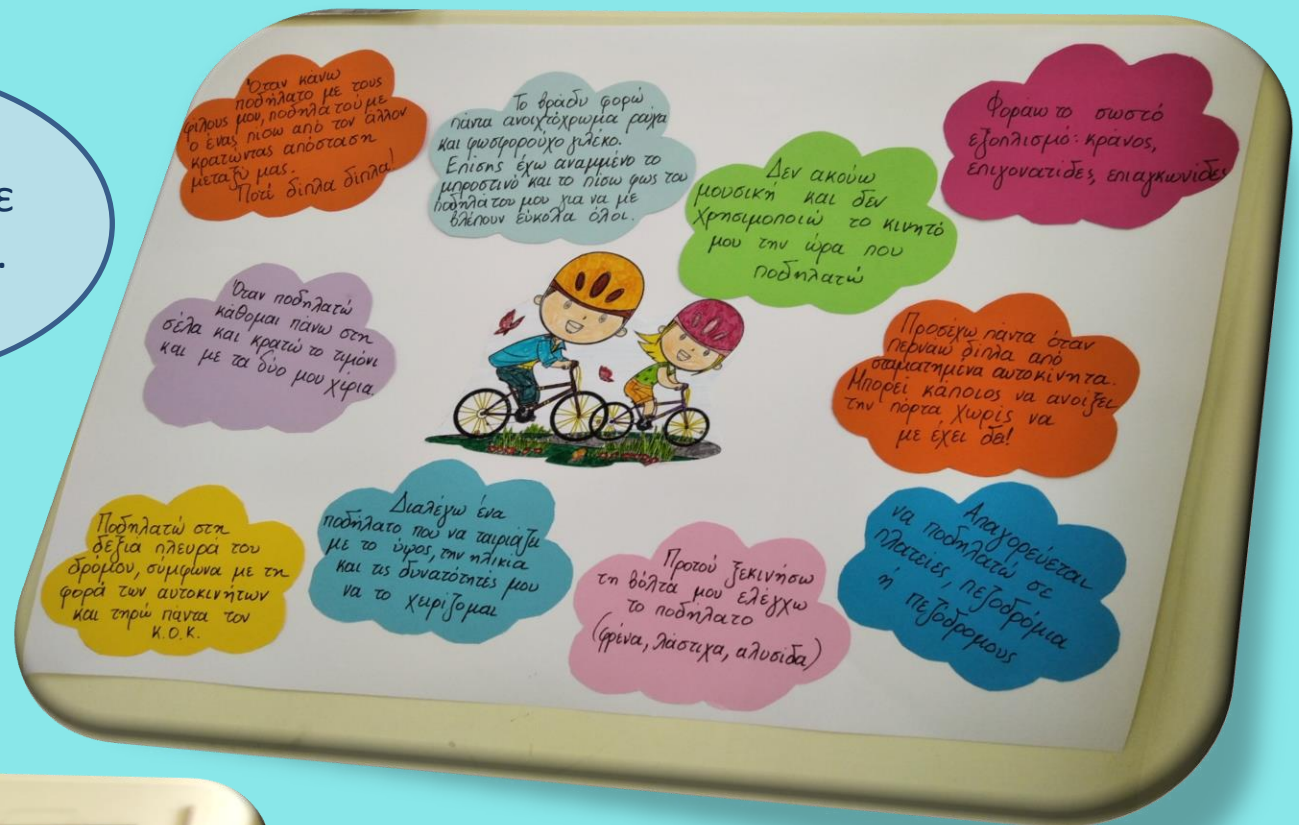 ε
.
Όταν κάνω
ποδήλατο με τους
φίλους μου, ποδηλατούμε
ο ένας πίσω από τον άλλον
κρατώντας απόσταση
μεταξύ μας.
Ποτέ δίπλα δίπλα!
Το βράδυ φορώ
πάντα ανοιχτόχρωμα ρούχα
και φωσφορούχο γιλέκο.
Επίσης έχω αναμμένο το
μπροστινό και το πίσω φως του
ποδηλάτου μου για να με
βλέπουν εύκολα όλοι.
Δεν ακούω
μουσική και δεν
χρησιμοποιώ το κινητό
μου την ώρα που
ποδηλατώ
Φοράω το σωστό
εξοπλισμό: κράνος,
επιγονατίδες, επιαγκωνίδες
Όταν ποδηλατώ
κάθομαι πάνω στη
σέλα και κρατώ το τιμόνι
και με τα δύο μου χέρια
Προσέχω πάντα όταν
περνάω δίπλα από
σταματημένα αυτοκίνητα.
Μπορεί κάποιος να ανοίξει
την πόρτα χωρίς να
με έχει δει!
Ποδηλατώ στη
δεξιά πλευρά του
δρόμου, σύμφωνα με τη
φορά των αυτοκινήτων
και τηρώ πάντα τον
Κ.Ο.Κ.
Διαλέγω ένα
ποδήλατο που να ταιριάζει
με το ύψος, την ηλικία
και τις δυνατότητές μου
να το χειρίζομαι
Προτού ξεκινήσω
τη βόλτα μου ελέγχω
το ποδήλατο
(φρένα, λάστιχα, αλυσίδα)
Απαγορεύεται
να ποδηλατώ σε
πλατείες, πεζοδρόμια
ή πεζοδρομους